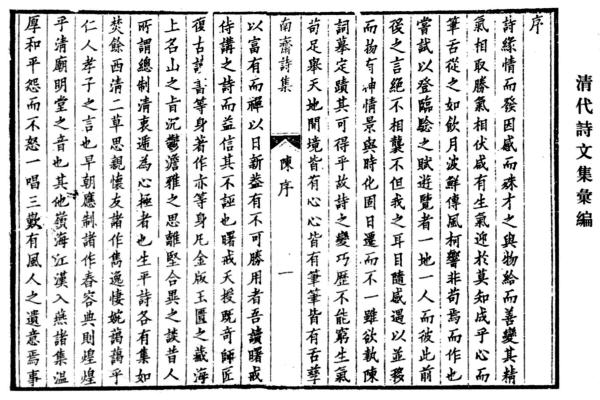 清代詩文集彙編
序
詩緣情而發因感而殊才之與物給而善變其精
氣相取勝氣相伏咸有生氣迎於莫知成乎心而
筆舌從之如飲月波鮮傳風柯響非苟焉而作也
嘗試以登臨驗之賦遊覽者一地一人而彼此前
後之言絕不相襲不但我之耳目隨感遇以並移
而物有神情景與時化固日遷而不一雖欲執陳
詞摹定蹟其可得乎故詩之變巧歷不能窮生氣
苟足與天地間境皆有心心皆有筆筆皆有舌孳
南齋詩集
陳序
一
以富有而禪以日新蓋有不可勝用者吾讀曙戒
侍講之詩而益信其不誣也曙戒天授既奇師匠
復古著書等身著作亦等身凡金版玉匱之藏海
上名山之肯沉鬱澹雅之思離堅合異之談昔人
所謂總制清衷遞為心極者也生平詩各有集如
焚餘西清二草思親懷友諸作雋逸悽婉藹藹乎
仁人孝子之言也早朝應制諸作春容典則煌煌
平清廟明堂之音也其他嶺海江漢入燕諸集溫
厚和平怨而不怒一唱三歎有風人之遺意焉事